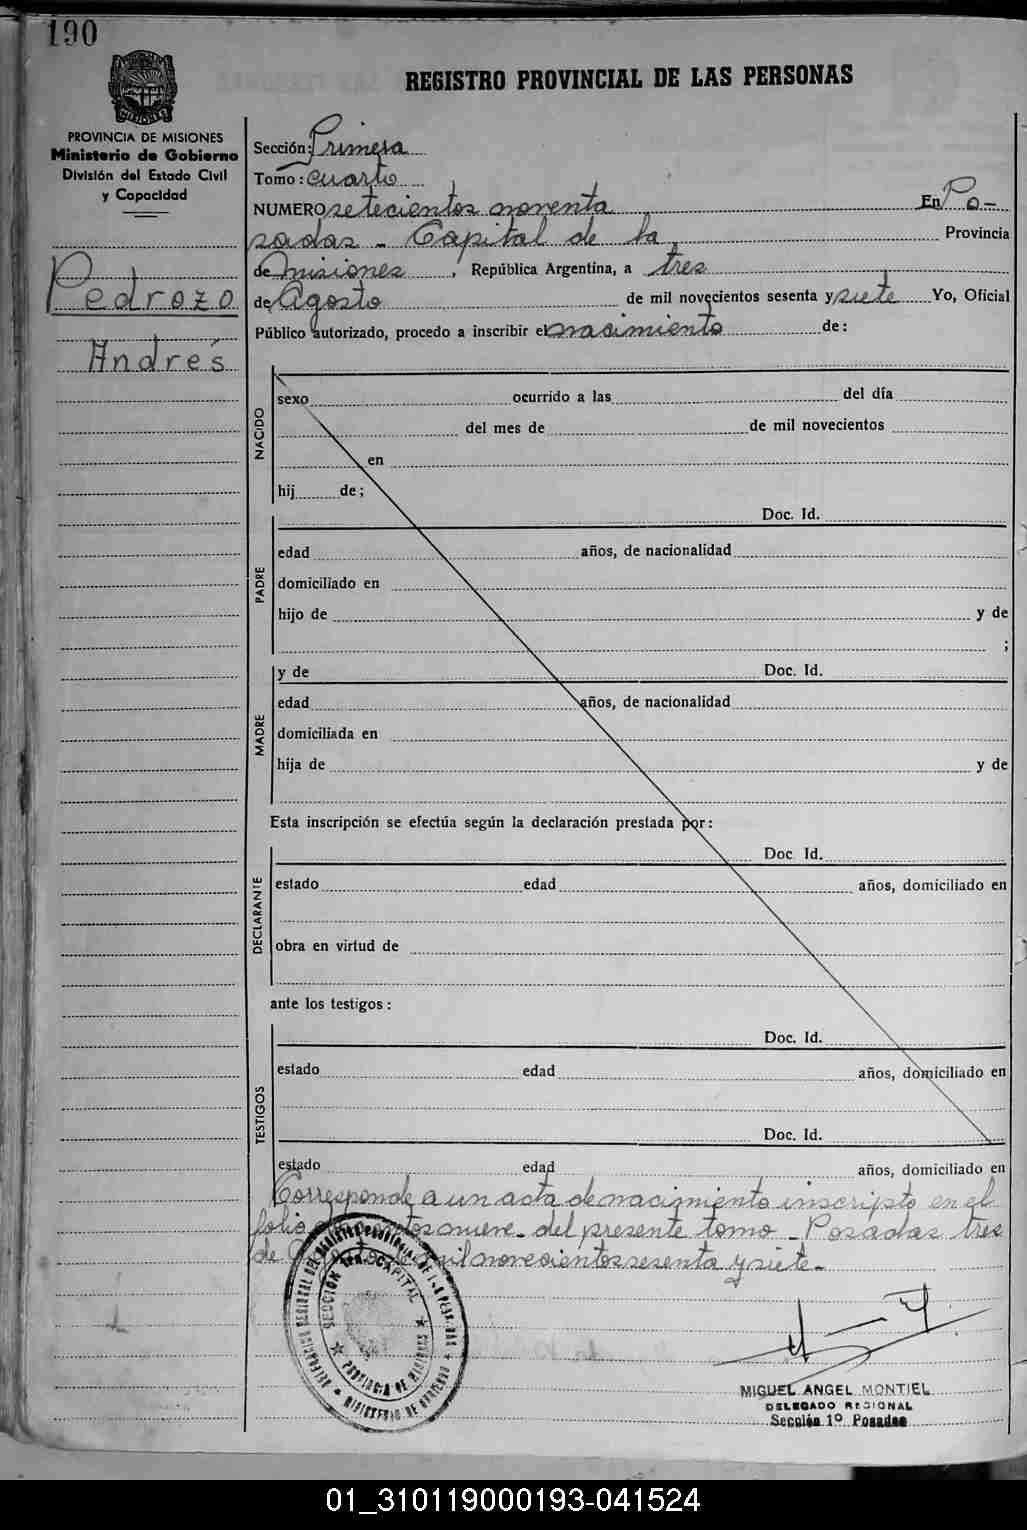 190
REGISTRO PROVINCIAL DE LAS PERSONAS
PROVINCIA DE MISIONES
Ministerio de Gobierno
División del Estado Civil
y Capacidad
Pedrozo
Andrés
Sección: Primera
Tomo: cuarto
NUMERO setecientos noventa En Po-
sadas - Capital de la Provincia
de misiones, República Argentina, a tres
de Agosto de mil novecientos sesenta y siete Yo, Oficial
Público autorizado, procedo a inscribir el nacimiento de:
NACIDO
sexo ocurrido a las del día
del mes de de mil novecientos
en
hij de;
Doc. Id.
PADRE
edad años, de nacionalidad
domiciliado en
hijo de y de
;
y de Doc. Id.
MADRE
edad años, de nacionalidad
domiciliada en
hija de y de
Esta inscripción se efectúa según la declaración prestada por:
Doc. Id.
DECLARANTE
estado edad años, domiciliado en
obra en virtud de
ante los testigos:
Doc. Id.
TESTIGOS
estado edad años, domiciliado en
Doc. Id.
estado edad años, domiciliado en
Corresponde a un acta de nacimiento inscripto en el
folio nueve. del presente tomo - Posadas tres
de mil novecientos sesenta y siete.-
SECCION 1RA. CAPITAL
PROVINCIA DE MISIONES
MINISTERIO DE GOBIERNO
MIGUEL ANGEL MONTIEL
DELEGADO REGIONAL
Sección 1º Posadas
01_310119000193-041524